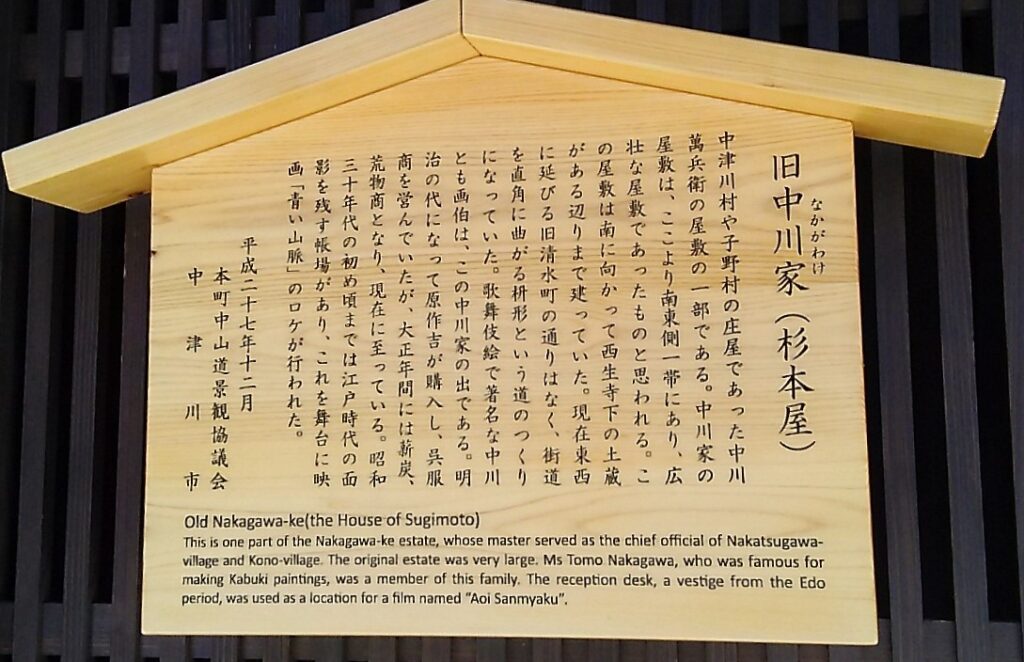 旧中川家（杉本屋）
なかがわけ
中津川村や子野村の庄屋であった中川
萬兵衛の屋敷の一部である。中川家の
屋敷は、ここより南東側一帯にあり、広
壮な屋敷であったものと思われる。こ
の屋敷は南に向かって西生寺下の土蔵
がある辺りまで建っていた。現在東西
に延びる旧清水町の通りはなく、街道
を直角に曲がる枡形という道のつくり
になっていた。歌舞伎絵で著名な中川
とも画伯は、この中川家の出である。明
治の代になって原作吉が購入し、呉服
商を営んでいたが、大正年間には薪炭、
荒物商となり、現在に至っている。昭和
三十年代の初め頃までは江戸時代の面
影を残す帳場があり、これを舞台に映
画「青い山脈」のロケが行われた。
平成二十七年十二月
本町中山道景観協議会
中津川市
Old Nakagawa-ke(the House of Sugimoto)
This is one part of the Nakagawa-ke estate, whose master served as the chief official of Nakatsugawa-
village and Kono-village. The original estate was very large. Ms Tomo Nakagawa, who was famous for
making Kabuki paintings, was a member of this family. The reception desk, a vestige from the Edo
period, was used as a location for a film named “Aoi Sanmyaku”.